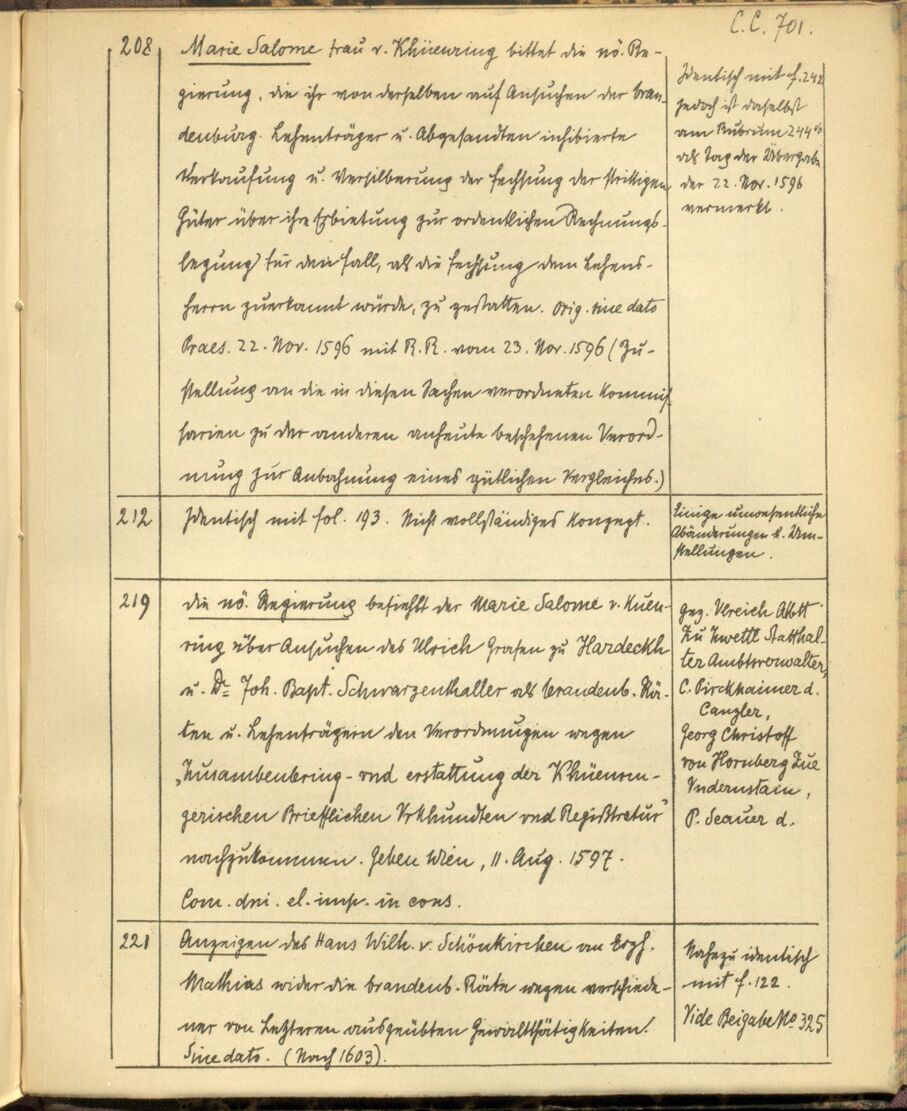 C.C. 701.
208
Marie Salome frau v. Khüenring bittet die nö. Re-
gierung, die ihr von derselben auf Ansuchen der bran-
denburg. Lehenträger u. Abgesandten inhibierte
Verkaufung u. Versilberung der Fechsung der strittigen
Güter über ihre Erbietung zur ordentlichen Rechnungs-
legung für den Fall, als die Fechsung dem Lehens-
herrn zuerkannt würde, zu gestatten. Orig. sine dato
Praes. 22. Nov. 1596 mit R.R. vom 23. Nov. 1596 (Zu-
stellung an die in diesen Sachen verordneten Kommis-
sarien zu der anderen anheute beschehenen Verord-
nung zur Anbahnung eines gütlichen Vergleiches.)
Identisch mit f. 242
jedoch ist daselbst
am Rubrum 244
als Tag der Übergabe
der 22. Nov. 1596
vermerkt.
212
Identisch mit fol. 193. Nicht vollständiges Konzept.
Einige unwesentliche
Abänderungen u. Um-
stellungen.
219
die nö. Regierung befiehlt der Marie Salome v. Kuen-
ring über Ansuchen des Ulrich Grafen zu Hardeckh
u. Dr. Joh. Bapt. Schwarzenthaller als brandenb. Rä-
ten u. Lehenträgern den Verordnungen wegen
„Zusambenbring- vnd erstattung der Khüenrin-
gerischen Briefflichen Vrkhundten vnd Registratur"
nachzukommen. Geben Wien, 11. Aug. 1597.
Com. dni. el. imp. in cons.
Gez. Ulreich Abbtt
Zu Zwettl Statthal-
ter Ambtsverwalter,
C. Pirckhaimer d.
Canzler,
Georg Christoff
von Hornberg Zue
Vndernstain,
P. Seauer d.
221
Anzeigen des Hans Wilh. v. Schönkirchen an Erzh.
Mathias wider die brandenb. Räte wegen verschiede-
ner von Letzteren ausgeübten Gewaltthätigkeiten.
Sine dato. (Nach 1603).
Nahezu identisch
mit f. 122.
Vide Beigabe No 325